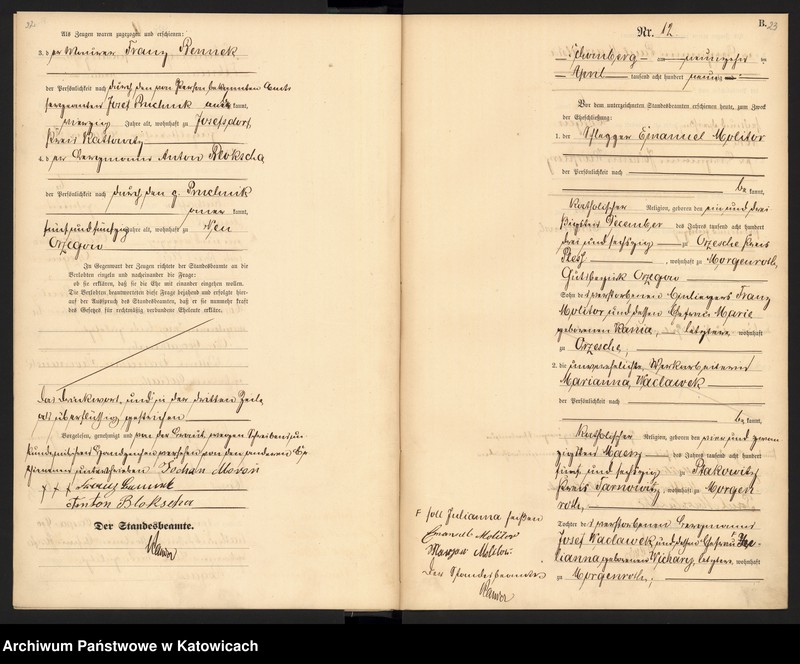 22.
Als Zeugen waren zugezogen und erschienen:
3. der Maurer Franz Rennek
der Persönlichkeit nach durch den von Person bekannten Amts
sergeanten Josef Pruchnik aner kannt,
vierzig Jahre alt, wohnhaft zu Josefsdorf,
Kreis Kattowitz
4. der Bergmann Anton Blokscha
der Persönlichkeit nach durch den p. Pruchnik
aner kannt,
fünfundfünfzig Jahre alt, wohnhaft zu Neu
Orzegow
In Gegenwart der Zeugen richtete der Standesbeamte an die
Verlobten einzeln und nacheinander die Frage:
ob sie erklären, daß sie die Ehe mit einander eingehen wollen.
Die Verlobten beantworteten diese Frage bejahend und erfolgte hier-
auf der Ausspruch des Standesbeamten, daß er sie nunmehr kraft
des Gesetzes für rechtmäßig verbundene Eheleute erkläre.
das Druckwort und in der dritten Zeile
als überflüssig gestrichen
Vorgelesen, genehmigt und von der Braut wegen Schreibensun
kunde mit drei Handzeichen versehen, von den anderen Er
schienenen unterschrieben Johan
+ + + Franz
Anton Blokscha
Der Standesbeamte.
B. 23
Nr. 12
Schomberg am neunzehn ten
April tausend acht hundert neunzig
Vor dem unterzeichneten Standesbeamten erschienen heute, zum Zweck
der Eheschließung:
1. der Pfleger Emanuel Molitor
der Persönlichkeit nach
be kannt,
katholischer Religion, geboren den ein und drei
ßigsten Dezember des Jahres tausend acht hundert
drei und sechszig zu Orzesche Kreis
Pleß, wohnhaft zu Morgenroth,
Gutsbezirk Orzegow
Sohn des verstorbenen Einliegers Franz
Molitor und dessen Ehefrau Marie
geborenen Kania, letztere wohnhaft
zu Orzesche,
2. die unverehelichte Werkarbeiterin
Marianna Waclawek
der Persönlichkeit nach
be kannt,
katholischer Religion, geboren den vier und zwan
zigsten Maerz des Jahres tausend acht hundert
fünf und sechszig zu Ptakowitz
Kreis Tarnowitz, wohnhaft zu Morgen
roth,
Tochter des verstorbenen Bergmanns
Josef Waclawek und dessen Ehefrau
lianna geborenen Wichary, letztere wohnhaft
zu Morgenroth,
F soll Julianna heißen
Emanuel Molitor
Molitor
Der Standesbeamte
Archiwum Państwowe w Katowicach